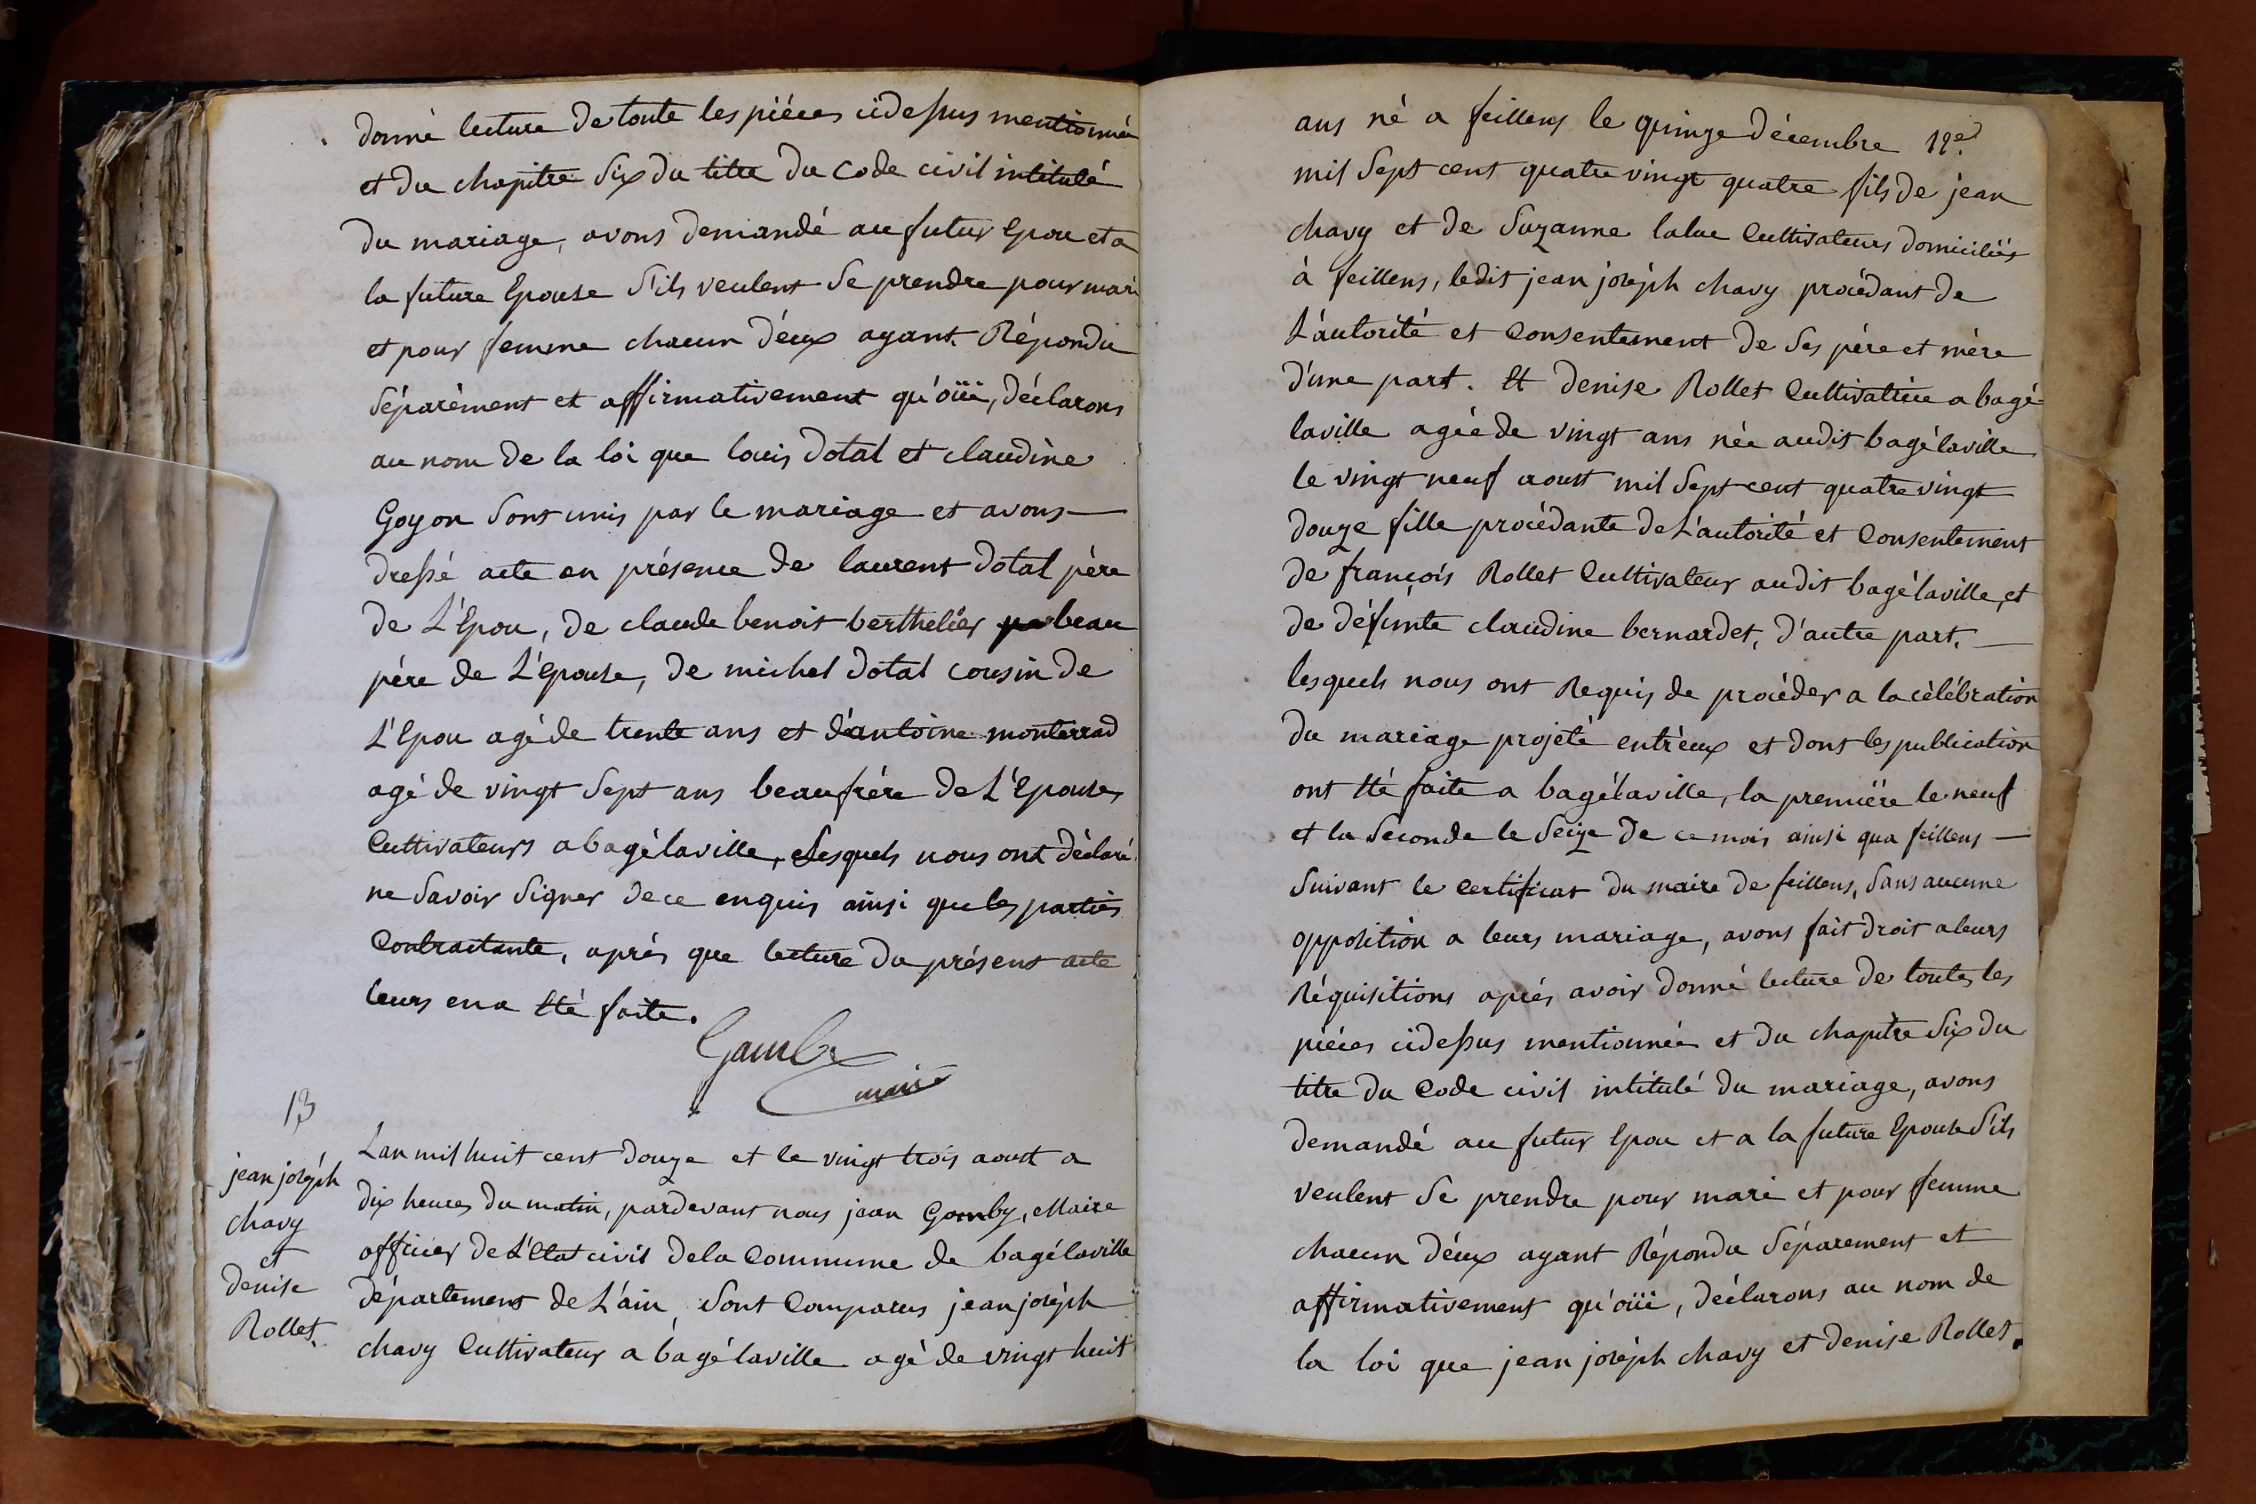 donné lecture de toute les piéces cidessus mentionnée
et du chapitre Six du titre du Code civil intitulé
du mariage, avons demandé au futur Epou et a
la future Epouse S'ils veulent Se prendre pour mari
et pour femme chacun d'éux ayant Répondu
Séparément et affirmativement qu'oüi, déclarons
au nom de la loi que louis dotal et claudine
Goyon Sont unis par le mariage et avons
dressé acte en présence de laurent dotal père
de L'Epou, de claude benoit berthelier beau
pére de L'épouse, de michel dotal cousin de
L'Epou agé de trente ans et d'antoine monterrad
agé de vingt Sept ans beaufrére de L'Epouse
Cultivateurs a bagélaville, Lesquels nous ont déclaré
ne Savoir Signer de ce enquis ainsi que les parties
Contractante, aprés que lecture du présent acte
leurs en a Eté faite.
Gamby
maire
13
jean joséph
chavy
et
denise
Rollet.
Lan mil huit cent douze et le vingt trois aoust a
dix heures du matin, pardevant nous jean Gomby, Maire
officier de L'Etat civil dela Commune de bagélaville
département de L'ain, Sont Comparus jean joséph
chavy Cultivateur a bagélaville agé de vingt huit
ans né a feillens le quinze décembre 19e
mil Sept cent quatre vingt quatre fils de jean
chavy et de Suzanne lalue Cultivateurs domiciliés
à feillens, ledit jean joséph chavy procédant de
L'autorité et Consentement de Ses pére et mére
d'une part. Et denise Rollet Cultivatrice a bagé
laville agée de vingt ans née audit bagélaville
le vingt neuf aoust mil Sept cent quatre vingt
douze fille procédante de L'autorité et Consentement
de françois Rollet Cultivateur audit bagélaville, et
de défunte claudine bernardet, d'autre part.
lesquels nous ont Requis de procéder a la célébration
du mariage projété entr'eux et dont les publication
ont Eté faite a bagélaville, la premiére le neuf
et la Seconde le Seize de ce mois ainsi qua feillens
Suivant le Certificat du maire de feillens, Sans aucune
opposition a leurs mariage, avons fait droit a leurs
Réquisitions aprés avoir donné lecture de toutes les
piéces cidessus mentionnée et du chapitre Six du
titre du Code civil intitulé du mariage, avons
demandé au futur Epou et a la future Epouse S'ils
veulent Se prendre pour mari et pour femme
chacun d'éux ayant Répondu Séparement et
affirmativement qu'oüi, déclarons au nom de
la loi que jean joséph chavy et denise Rollet.